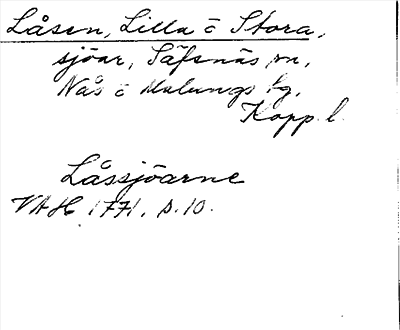 Låsen, Lilla o Stora,
sjöar, Säfsnäs sn,
Nås o Malungs tg,
Kopp. l.
Låssjöarne
VAH 1771, s. 10.